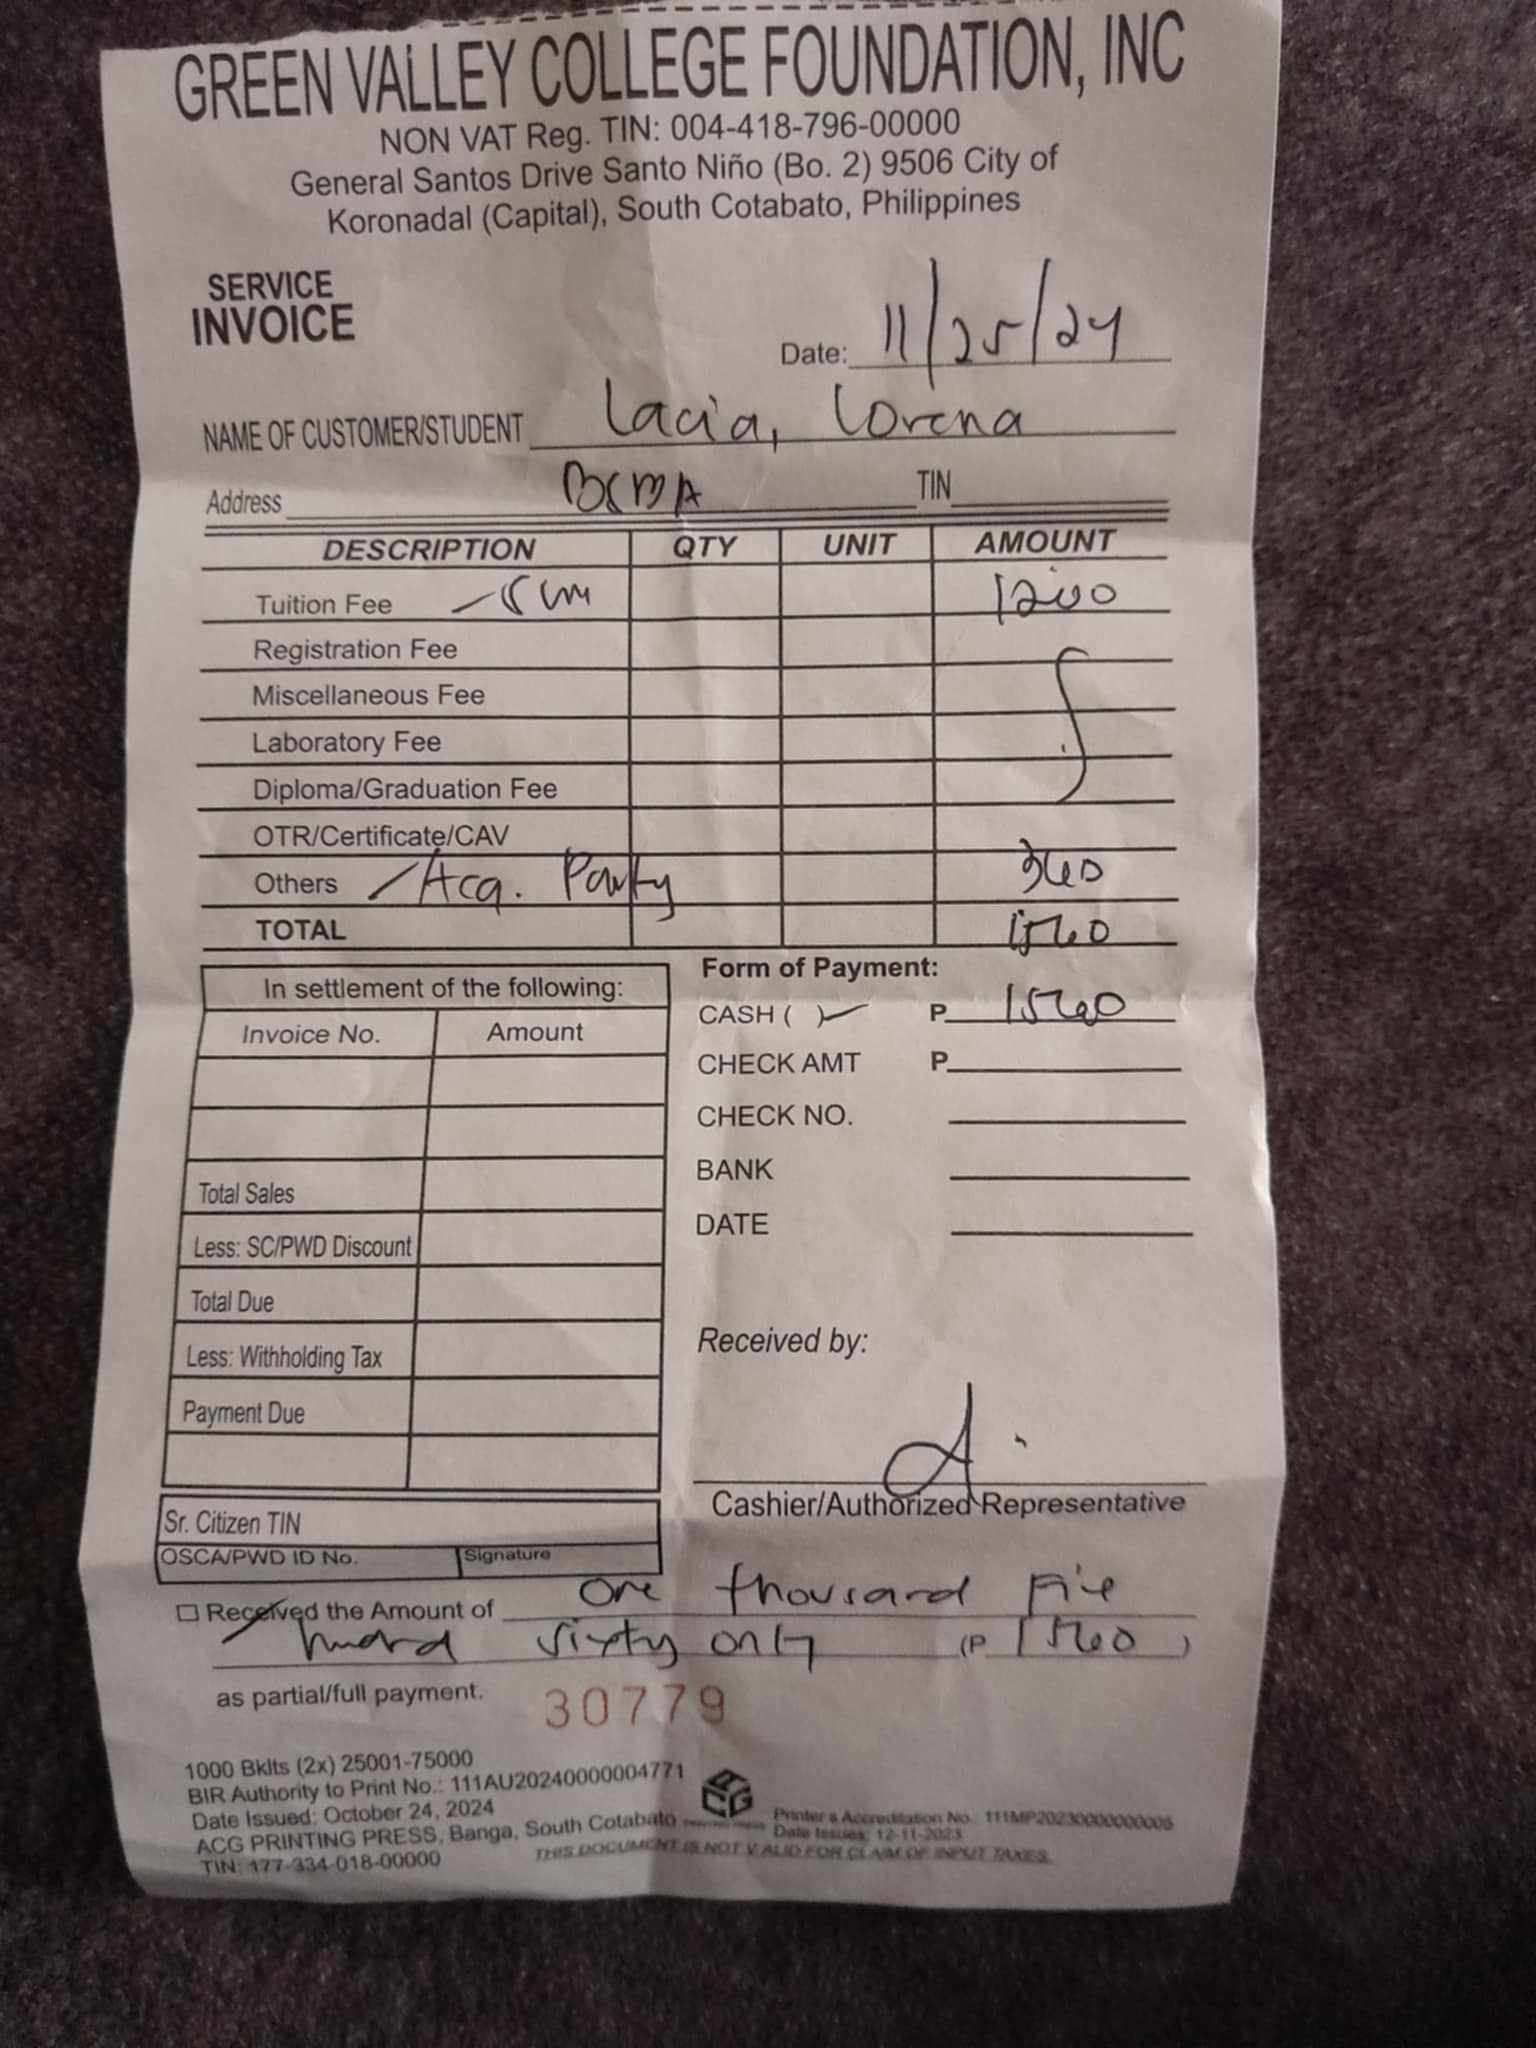 GREEN VALLEY COLLEGE FOUNDATION, INC
NON VAT Reg. TIN: 004-418-796-00000
General Santos Drive Santo Niño (Bo. 2) 9506 City of
Koronadal (Capital), South Cotabato, Philippines
SERVICE
INVOICE
Date: 11/25/24
NAME OF CUSTOMER/STUDENT Lacia, Lorena
Address BSBA TIN
DESCRIPTION QTY UNIT AMOUNT
Tuition Fee 1200
Registration Fee
Miscellaneous Fee
Laboratory Fee
Diploma/Graduation Fee
OTR/Certificate/CAV
Others Acq. Party 360
TOTAL 1560
In settlement of the following:
Invoice No. Amount
Total Sales
Less: SC/PWD Discount
Total Due
Less: Withholding Tax
Payment Due
Form of Payment:
CASH ( ) P 1560
CHECK AMT P
CHECK NO.
BANK
DATE
Received by:
Cashier/Authorized Representative
Sr. Citizen TIN
OSCA/PWD ID No. Signature
Received the Amount of One thousand Five
hundrd sixty only (P 1560 )
as partial/full payment. 30779
1000 Bklts (2x) 25001-75000
BIR Authority to Print No.: 111AU20240000004771
Date Issued: October 24, 2024
ACG PRINTING PRESS, Banga, South Cotabato
TIN: 177-334-018-00000
ACG
Printer's Accreditation No. 111MP20230000000005
Date Issues: 12-11-2023
THIS DOCUMENT IS NOT VALID FOR CLAIM OF INPUT TAXES.